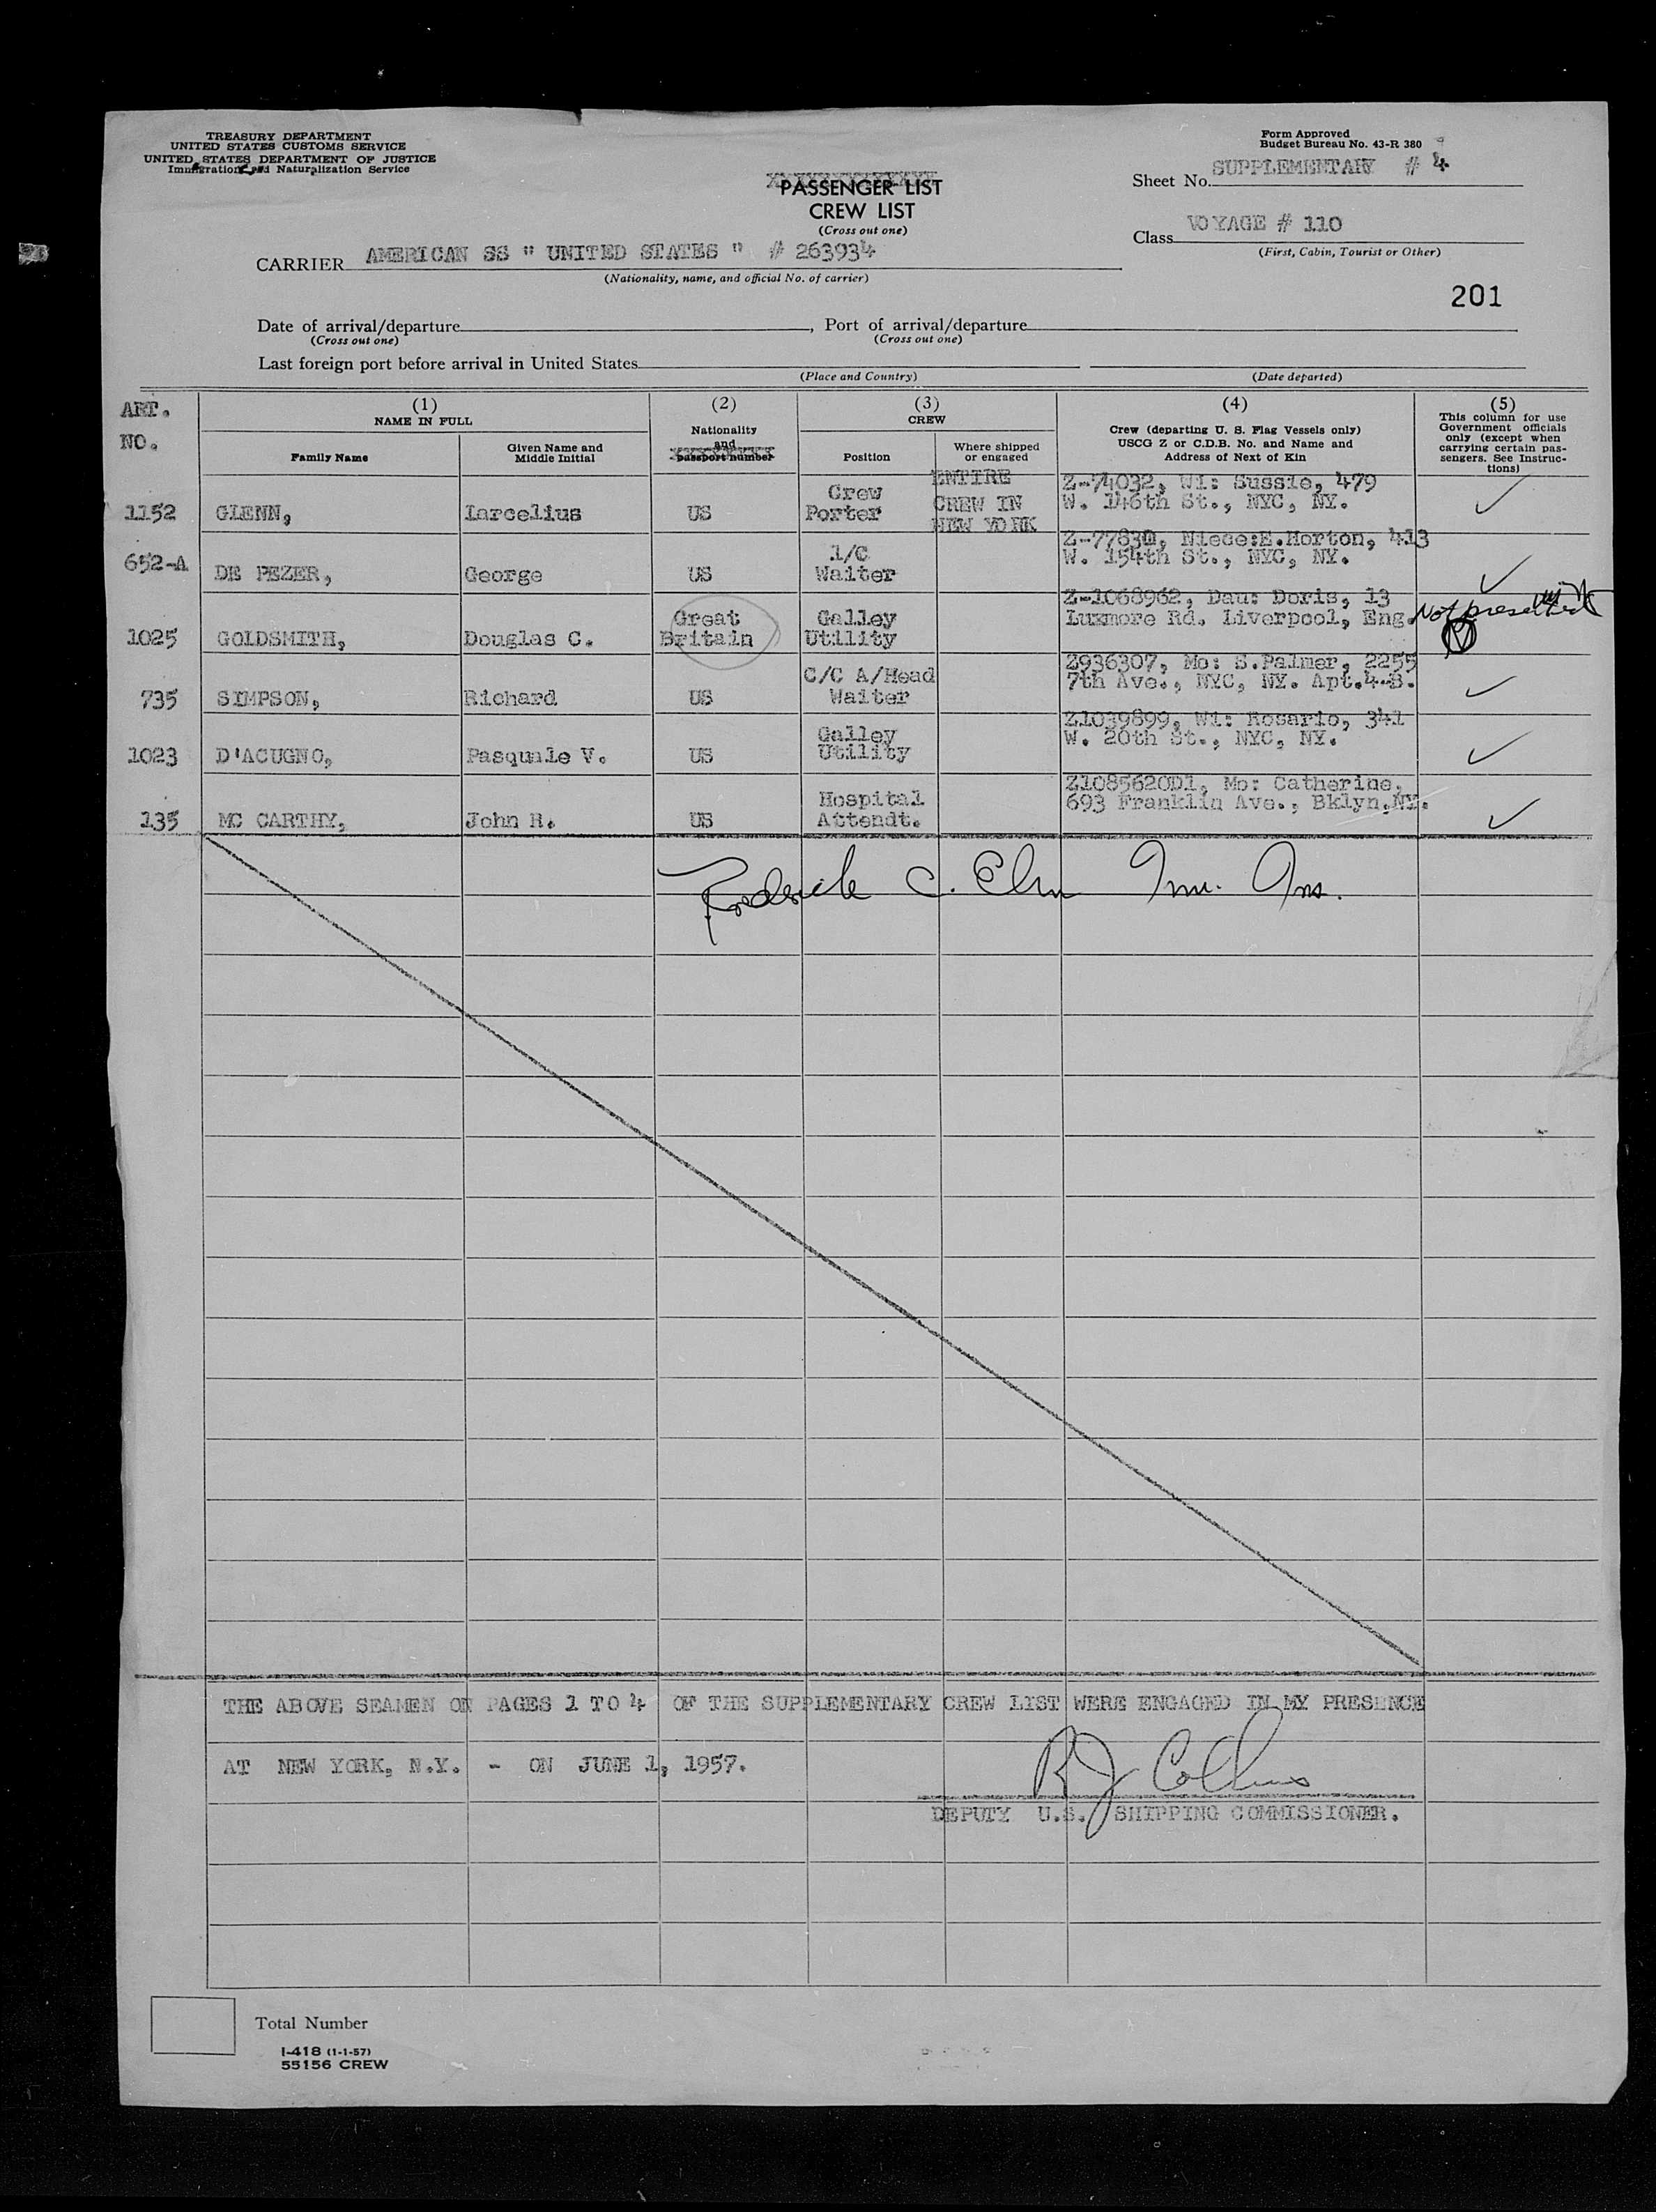 TREASURY DEPARTMENT
UNITED STATES CUSTOMS SERVICE
UNITED STATES DEPARTMENT OF JUSTICE
Immigration and Naturalization Service
Form Approved
Budget Bureau No. 43-R 380
Sheet No. SUPPLEMENTARY # 4
PASSENGER LIST
CREW LIST
(Cross out one)
Class VOYAGE # 110
(First, Cabin, Tourist or Other)
CARRIER AMERICAN SS " UNITED STATES " # 263934
(Nationality, name, and official No. of carrier)
201
Date of arrival/departure, Port of arrival/departure
(Cross out one) (Cross out one)
Last foreign port before arrival in United States
(Place and Country) (Date departed)
ART.
NO.
(1)
NAME IN FULL
Family Name
Given Name and
Middle Initial
(2)
Nationality
and
passport number
(3)
CREW
Position
Where shipped
or engaged
(4)
Crew (departing U. S. Flag Vessels only)
USCG Z or C.D.B. No. and Name and
Address of Next of Kin
(5)
This column for use
Government officials
only (except when
carrying certain pas-
sengers. See Instruc-
tions)
ENTIRE
CREW IN
NEW YORK
1152 GLENN, Larcelius US Crew Porter Z-74032, Wi: Sussie, 479
W. 146th St., NYC, NY.
652-A DE PEZER, George US 1/C Waiter Niece:E.Horton, 413
W. 154th St., NYC, NY.
1025 GOLDSMITH, Douglas C. Great Britain Galley Utility Z-1068962, Dau: Doris, 13
Luxmore Rd. Liverpool, Eng.
Not presented
735 SIMPSON, Richard US C/C A/Head Waiter Z936307, Mo: S.Palmer, 2255
7th Ave., NYC, NY. Apt.4-B.
1023 D'ACUGNO, Pasquale V. US Galley Utility Z1039899, Wi: Rosario, 341
W. 20th St., NYC, NY.
135 MC CARTHY, John H. US Hospital Attendt. Z1085620D1, Mo: Catherine,
693 Franklin Ave., Bklyn,NY.
Frederick C. Elm Imm. Ins.
THE ABOVE SEAMEN ON PAGES 1 TO 4 OF THE SUPPLEMENTARY CREW LIST WERE ENGAGED IN MY PRESENCE
AT NEW YORK, N.Y. - ON JUNE 1, 1957.
R J Collins
DEPUTY U.S. SHIPPING COMMISSIONER.
Total Number
I-418 (1-1-57)
55156 CREW